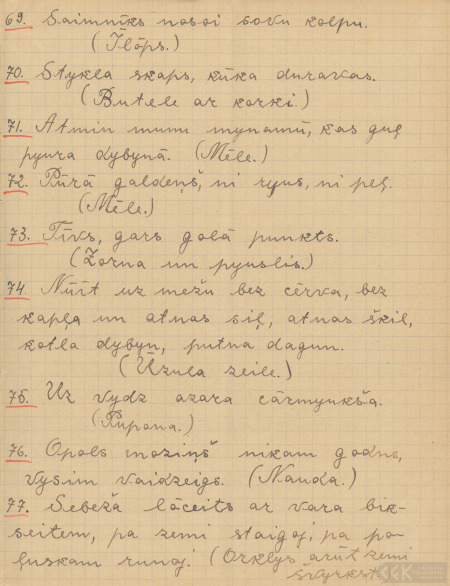 69. Saimnīks nosoi sovu kolpu.
(Īlōps.)
70. Stykla skaps, kūka duravas.
(Butele ar korki.)
71. Atmin munu mynamū, kas guļ
pyura dybynā. (Mēle.)
72. Pūrā galdeņš, ni ryus, ni peļ.
(Mēle.)
73. Tīvs, gars golā punkts.
(Zorna un pyuslis.)
74. Nūīt uz mežu bez cērva, bez
kapļa un atnas siļ, atnas škil,
kotla dybyn, putna dagun.
(Ūzula zeile.)
75. Uz vydz azara cārmyukša.
(Pupona.)
76. Opols moziņš nikam godns,
vysim vaidzeigs. (Nauda.)
77. Sebežā lāceits ar vara bik-
seitem, pa zemi staigoj, pa pa-
ļuskam runoj. (Orklys arūt zemi